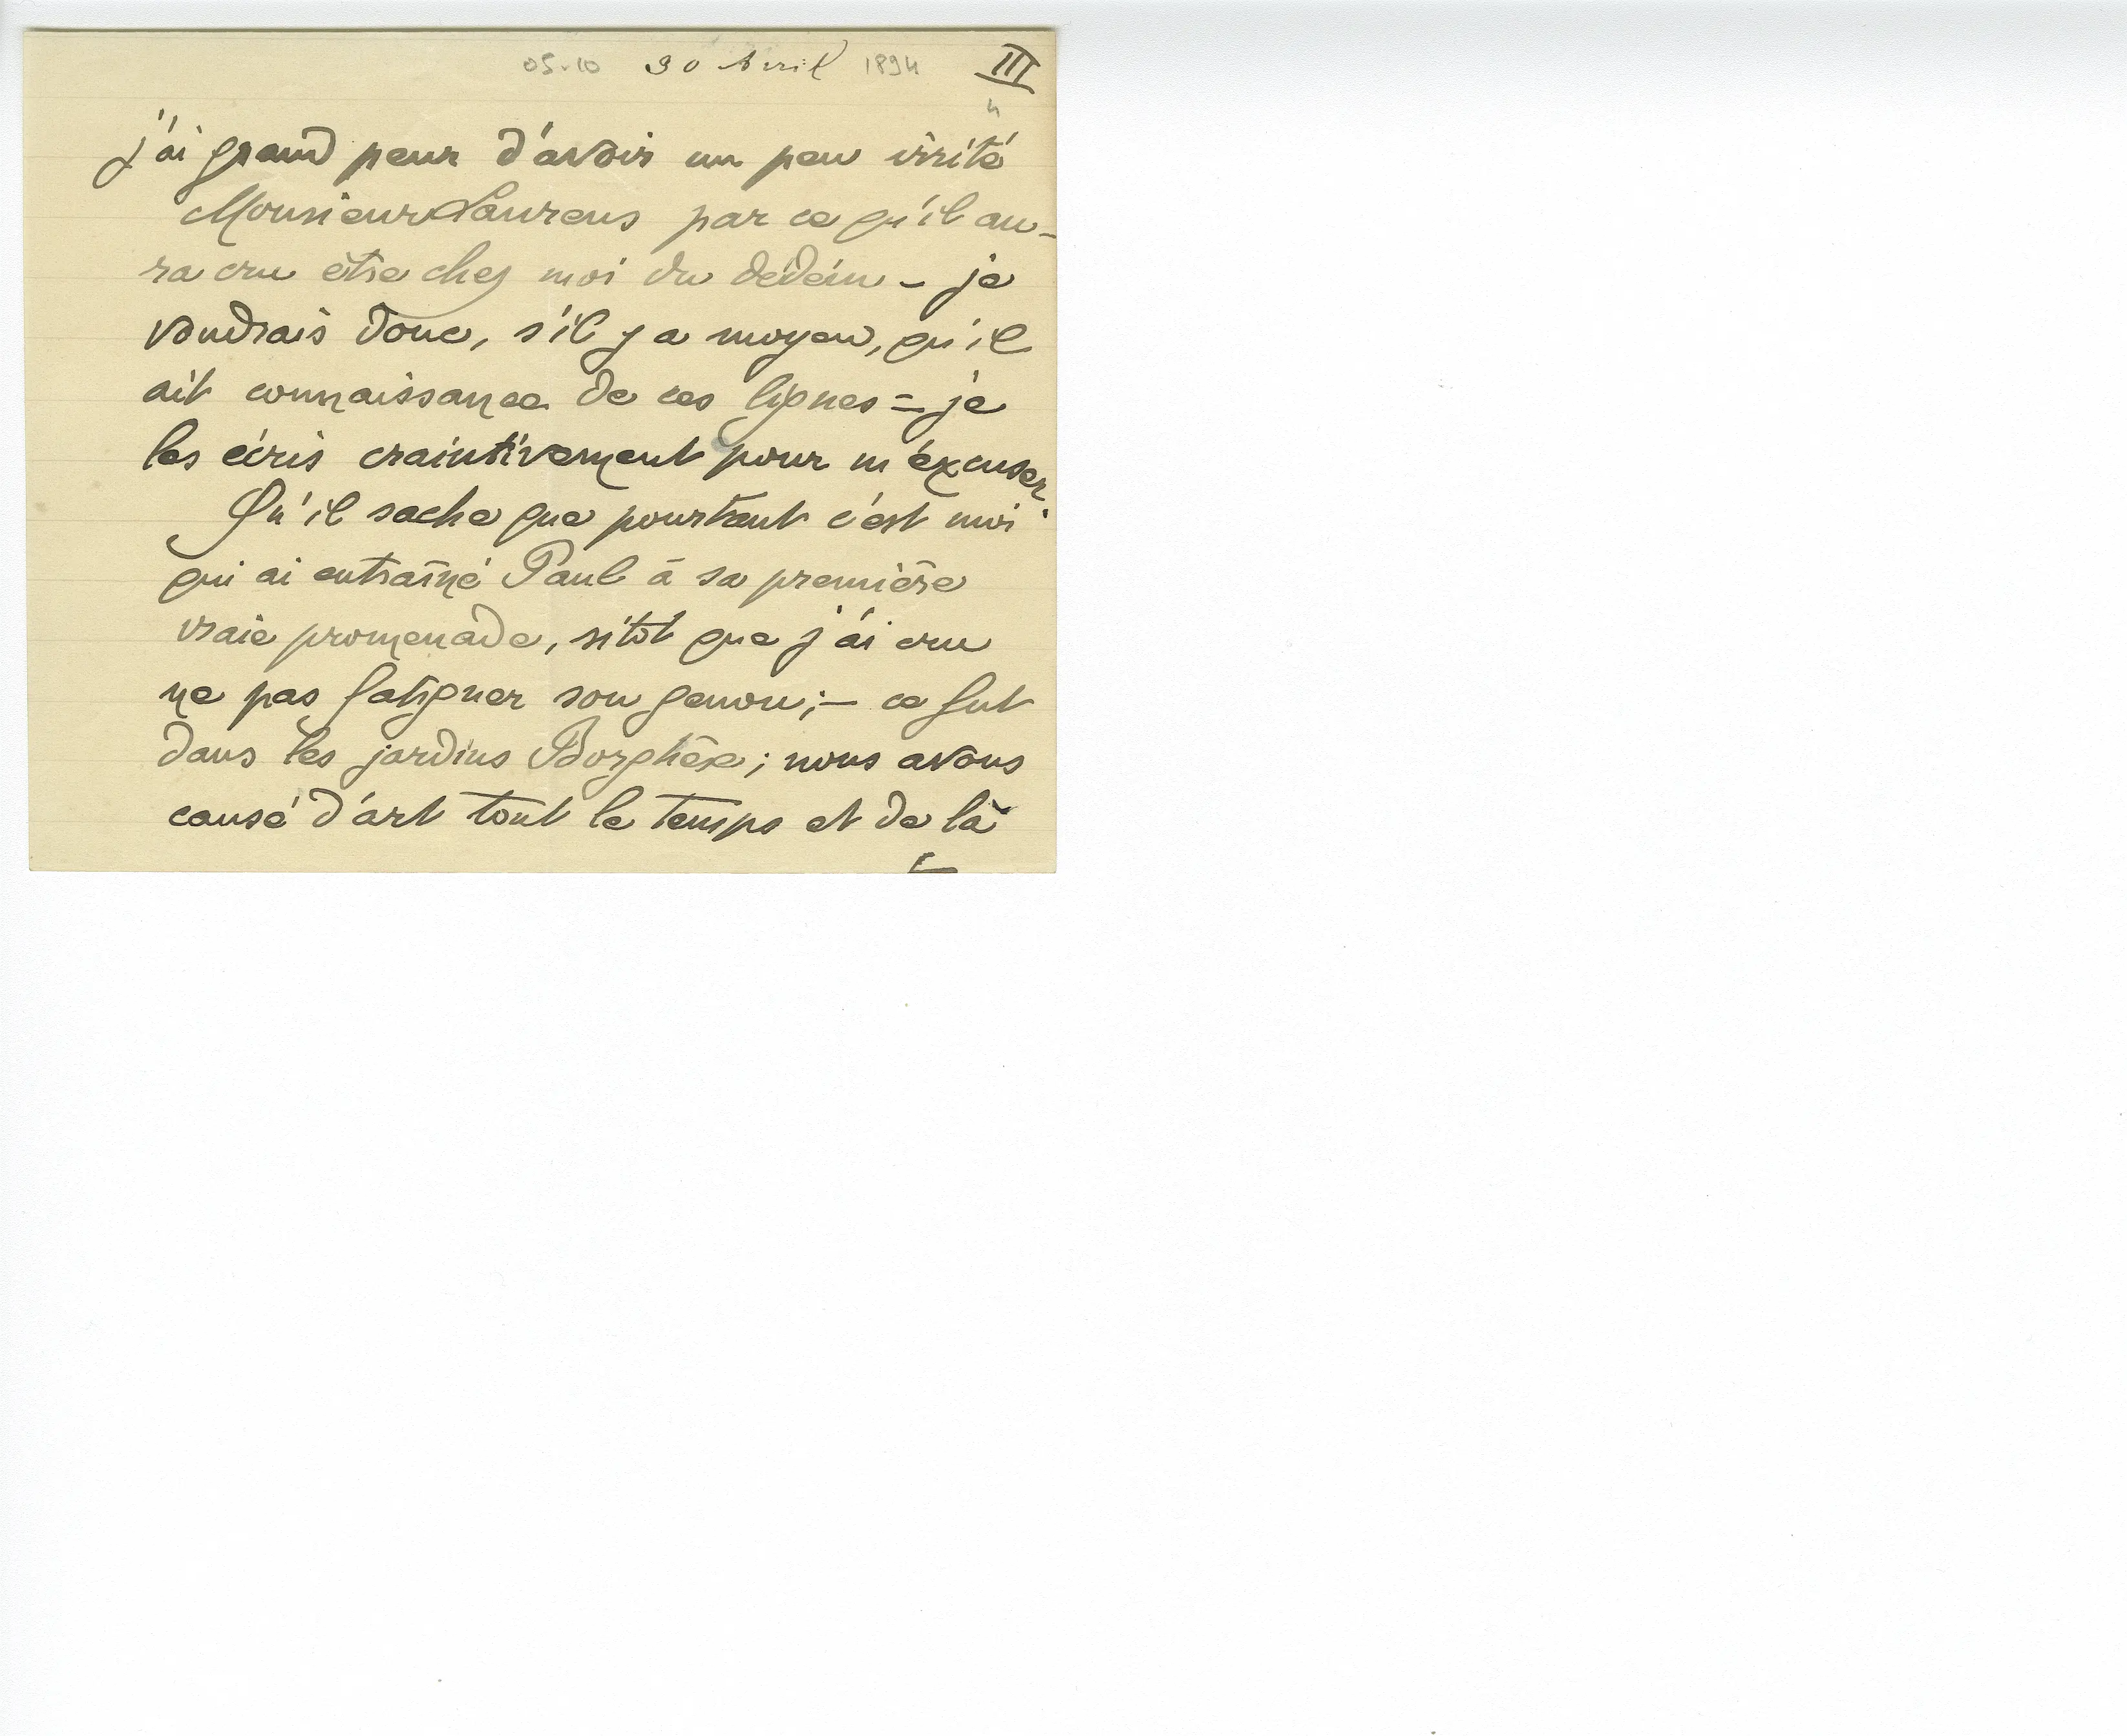 05.10 30 Avril 1894 III
4
j'ai grand peur d'avoir un peu irrité
Monsieur Laurens par ce qu'il au-
ra cru être chez moi du dédain - je
voudrais donc, s'il y a moyen, qu'il
ait connaissance de ces lignes = je
les écris craintivement pour m'excuser.
Qu'il sache que pourtant c'est moi
qui ai entraîné Paul à sa première
vraie promenade, sitôt que j'ai cru
ne pas fatiguer son genou; - ce fut
dans les jardins Borghèse; nous avons
causé d'art tout le temps et de là